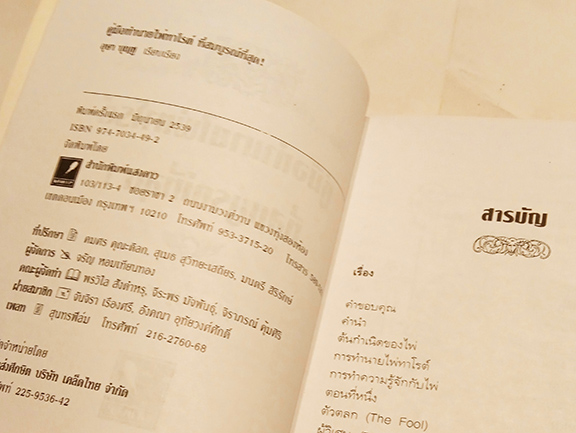 คู่มือทำนายไพ่ทาโรต์ ที่สมบูรณ์ที่สุด!
เรียบเรียง
พิมพ์ครั้งแรก มิถุนายน 2539
ISBN 974-7034-49-2
จัดพิมพ์โดย
สำนักพิมพ์แสงดาว
103/113-4 ซอยราชา 2 ถนนงามวงศ์วาน แขวงทุ่งสองห้อง
เขตดอนเมือง กรุงเทพฯ 10210 โทรศัพท์ 953-3715-20 โทรสาร
ที่ปรึกษา คมศร คุณะดิลก, สุเมธ สุวิทยะเสถียร, มนตรี ศิริรักษ์
ผู้จัดการ จรัญ หอมเทียนทอง
คณะผู้จัดทำ พรวิไล จีระพร มั่งพันธุ์, จิราภรณ์ คุ้มศิริ
ฝ่ายสมาชิก จันจิรา เรืองศรี, อังคณา อุทัยวงศ์ศักดิ์
เพลท สุนทรฟิล์ม โทรศัพท์ 216-2760-68
จำหน่ายโดย
บริษัท เคล็ดไทย จำกัด
225-9536-42
สารบัญ
เรื่อง
คำขอบคุณ
คำนำ
ต้นกำเนิดของไพ่
การทำนายไพ่ทาโรต์
การทำความรู้จักกับไพ่
ตอนที่หนึ่ง
ตัวตลก (The Fool)